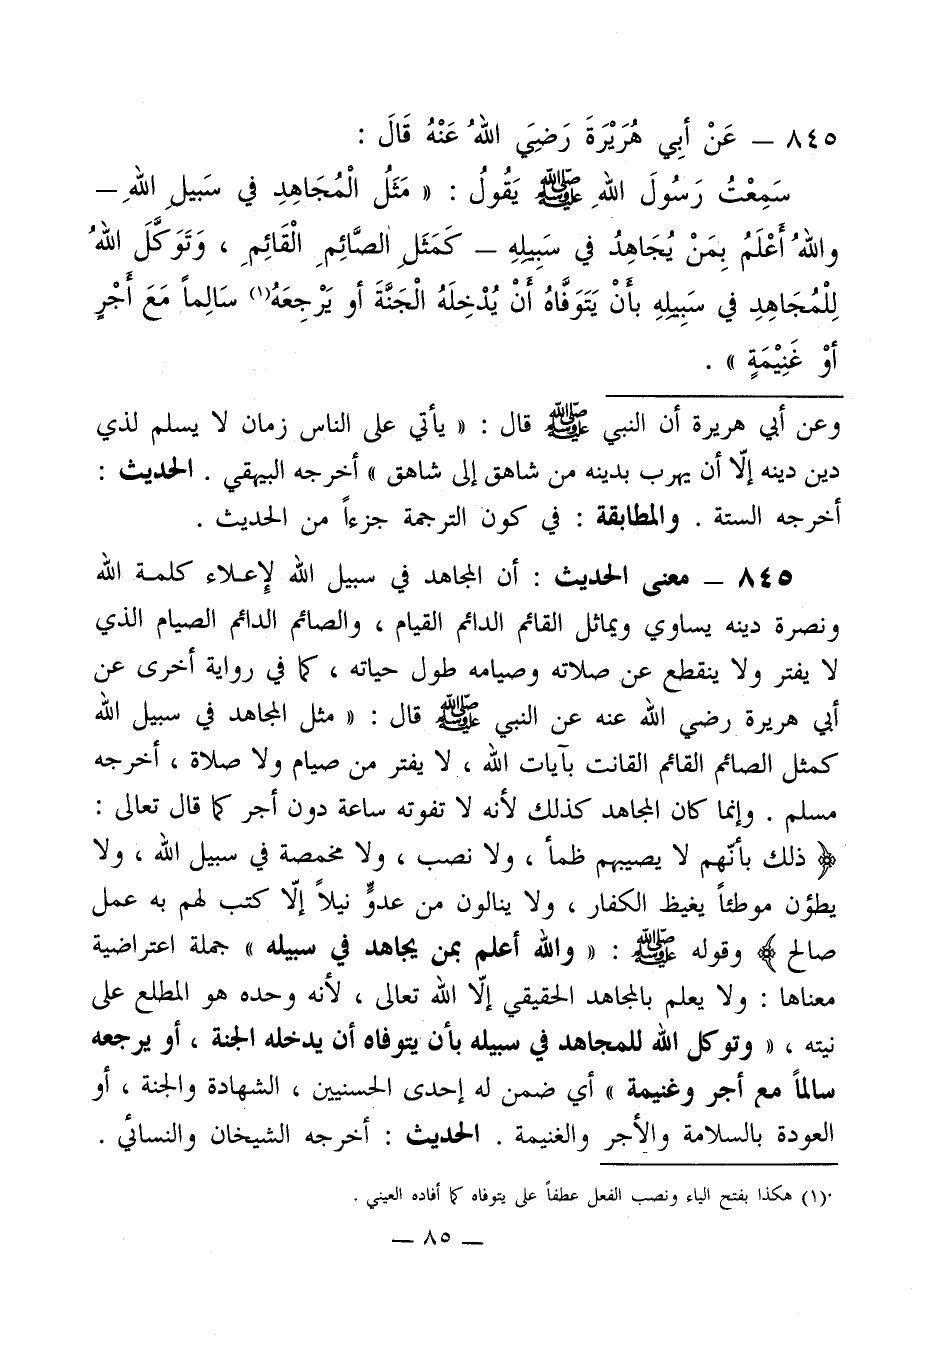 ٨٤٥ — عَنْ أَبِي هُرَيْرَةَ رَضِيَ اللهُ عَنْهُ قَالَ :
سَمِعْتُ رَسُولَ اللهِ ﷺ يَقُولُ : « مَثَلُ الْمُجَاهِدِ في سَبِيلِ اللهِ —
واللهُ أَعْلَمُ بِمَنْ يُجَاهِدُ في سَبِيلِهِ — كَمَثَلِ الصَّائِمِ الْقَائِمِ ، وَتَوَكَّلَ اللهُ
لِلْمُجَاهِدِ في سَبِيلِهِ بأَنْ يَتَوَفَّاهُ أَنْ يُدْخِلَهُ الْجَنَّةَ أو يَرْجِعَهُ(١) سَالِماً مَعَ أَجْرٍ
أَوْ غَنِيْمَةٍ » .
وعن أبي هريرة أن النبي ﷺ قال : « يأتي على الناس زمان لا يسلم لذي
دين دينه إلّا أن يهرب بدينه من شاهق إلى شاهق » أخرجه البيهقي . الحديث :
أخرجه الستة . والمطابقة : في كون الترجمة جزءاً من الحديث .
٨٤٥ — معنى الحديث : أن المجاهد في سبيل الله لإعلاء كلمة الله
ونصرة دينه يساوي ويماثل القائم الدائم القيام ، والصائم الدائم الصيام الذي
لا يفتر ولا ينقطع عن صلاته وصيامه طول حياته ، كما في رواية أخرى عن
أبي هريرة رضي الله عنه عن النبي ﷺ قال : « مثل المجاهد في سبيل الله
كمثل الصائم القائم القانت بآيات الله ، لا يفتر من صيام ولا صلاة ، أخرجه
مسلم . وإنما كان المجاهد كذلك لأنه لا تفوته ساعة دون أجر كما قال تعالى :
﴿ ذلك بأنّهم لا يصيبهم ظمأ ، ولا نصب ، ولا مخمصة في سبيل الله ، ولا
يطؤن موطئاً يغيظ الكفار ، ولا ينالون من عدوٍّ نيلاً إلّا كتب لهم به عمل
صالح ﴾ وقوله ﷺ : « والله أعلم بمن يجاهد في سبيله » جملة اعتراضية
معناها : ولا يعلم بالمجاهد الحقيقي إلّا الله تعالى ، لأنه وحده هو المطلع على
نيته ، « وتوكل الله للمجاهد في سبيله بأن يتوفاه أن يدخله الجنة ، أو يرجعه
سالماً مع أجر وغنيمة » أي ضمن له إحدى الحسنيين ، الشهادة والجنة ، أو
العودة بالسلامة والأجر والغنيمة . الحديث : أخرجه الشيخان والنسائي .
(١) هكذا بفتح الياء ونصب الفعل عطفاً على يتوفاه كما أفاده العيني .
— ٨٥ —